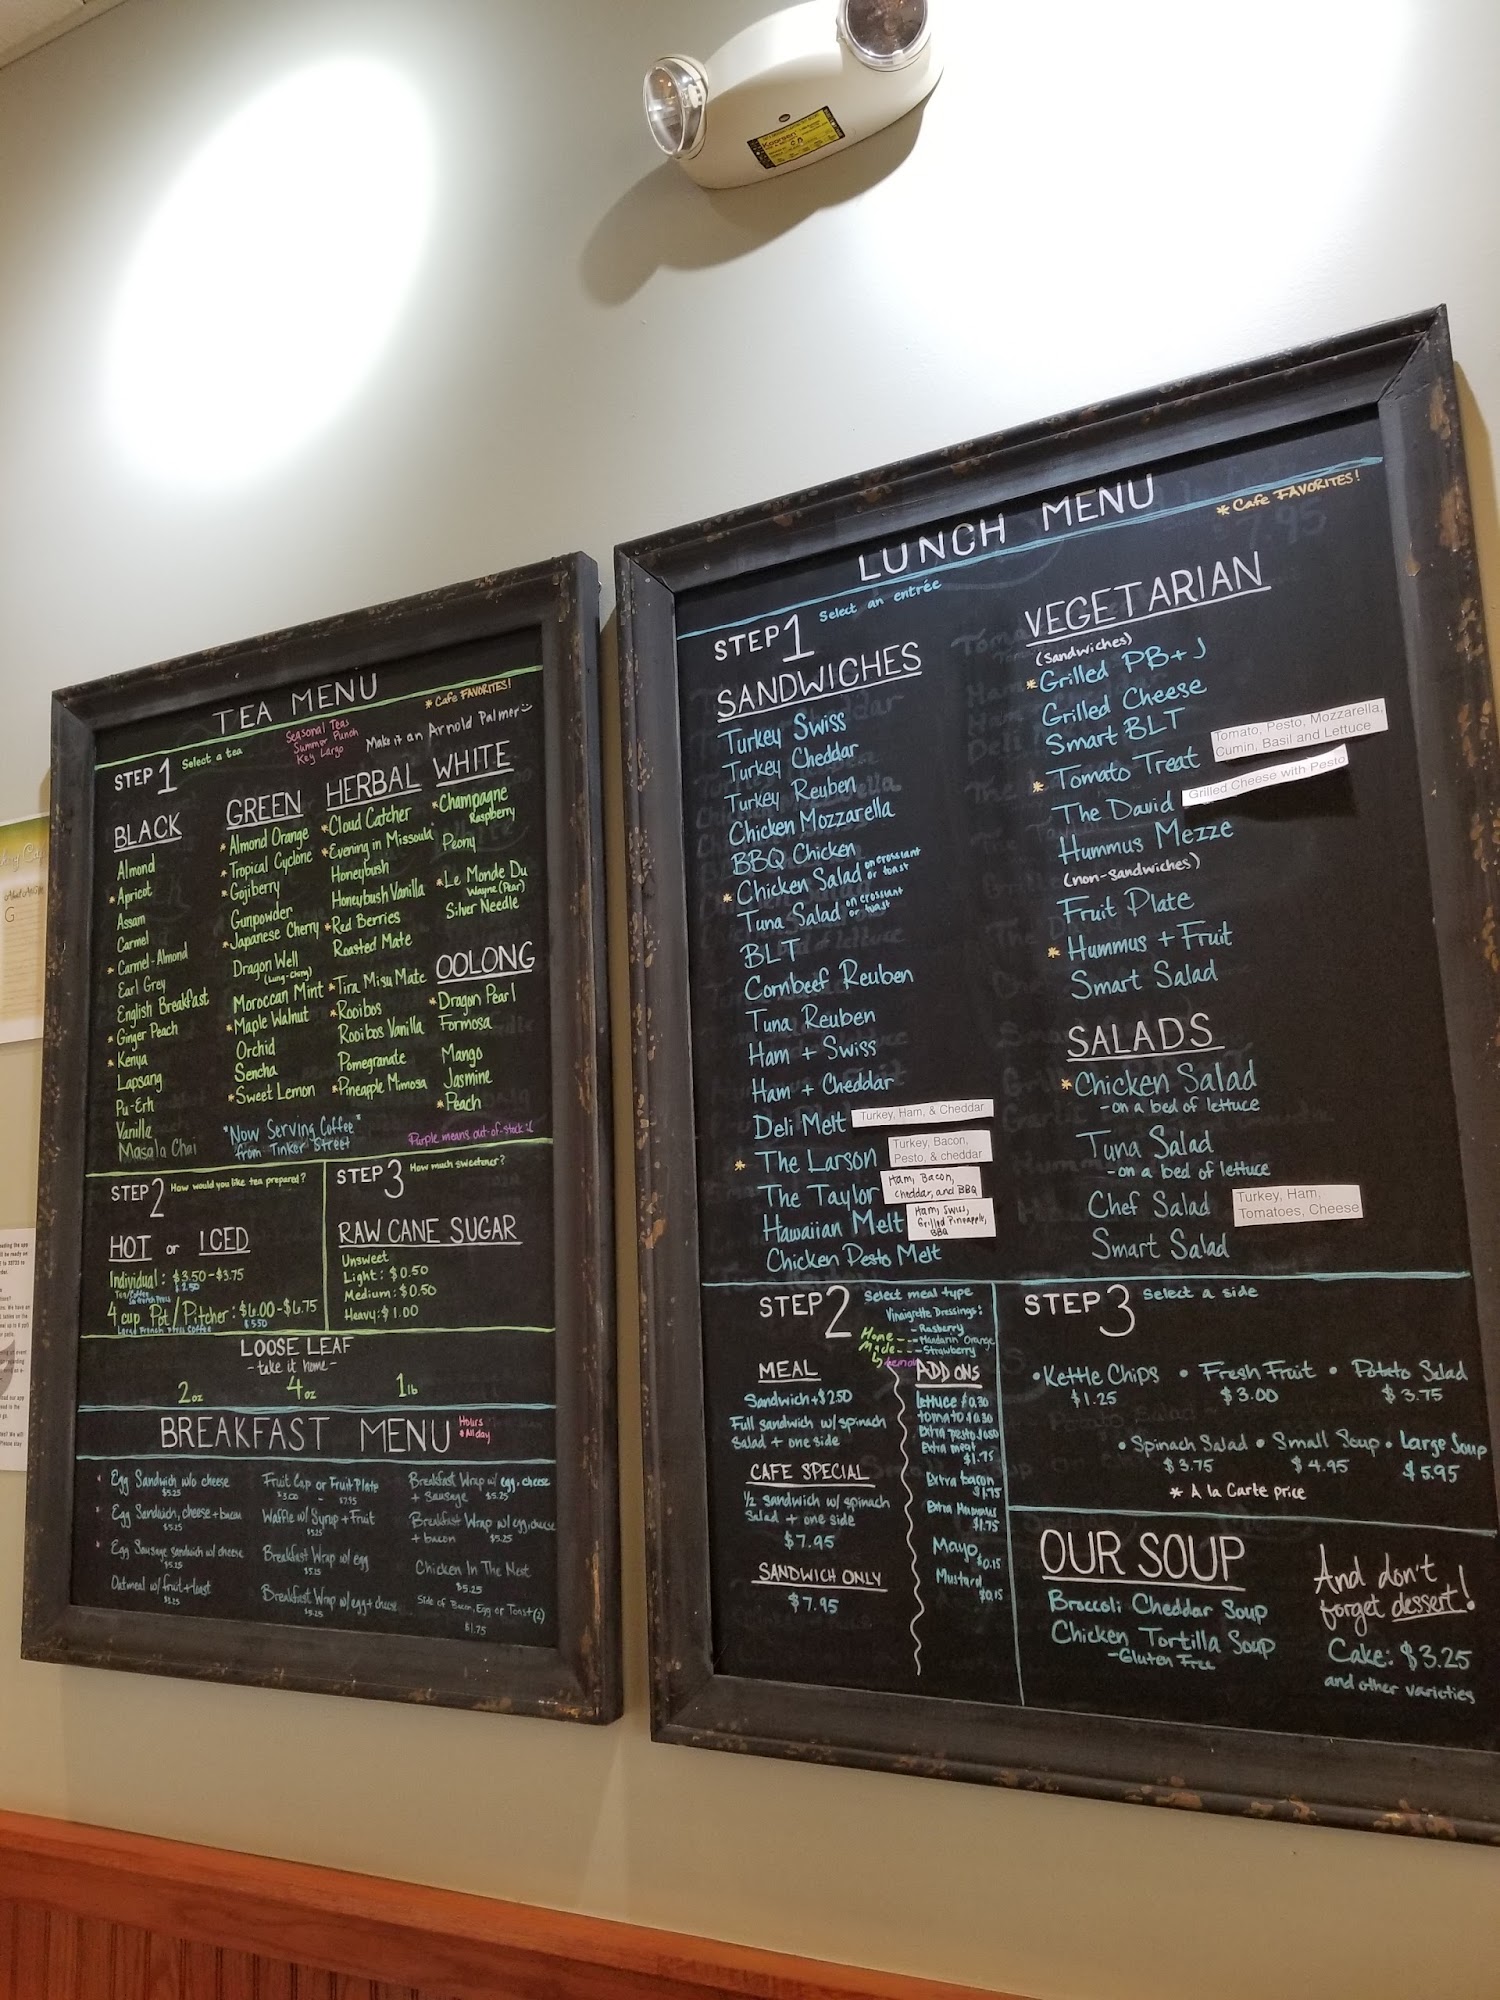 Koorsen
TEA MENU
* Cafe FAVORITES!
STEP 1 Select a tea
Seasonal Teas
Summer Punch
Key Largo
Make it an Arnold Palmer
BLACK
Almond
* Apricot
Assam
Carmel
* Carmel-Almond
Earl Grey
English Breakfast
* Ginger Peach
* Kenya
Lapsang
Pu-Erh
Vanilla
Masala Chai
GREEN
* Almond Orange
* Tropical Cyclone
* Gojiberry
Gunpowder
* Japanese Cherry
Dragon Well
(Lung-Ching)
Moroccan Mint
* Maple Walnut
Orchid
Sencha
* Sweet Lemon
HERBAL
* Cloud Catcher
* Evening in Missoula
Honeybush
Honeybush Vanilla
* Red Berries
Roasted Mate
* Tira Misu Mate
* Rooibos
Rooibos Vanilla
Pomegranate
* Pineapple Mimosa
WHITE
* Champagne
Raspberry
Peony
* Le Monde Du
Wayne (Pear)
Silver Needle
OOLONG
* Dragon Pearl
Formosa
Mango
Jasmine
* Peach
"Now Serving Coffee"
from Tinker Street
Purple means out-of-stock :(
STEP 2 How would you like tea prepared?
HOT or ICED
Individual: $3.50-$3.75
Tea/Coffee
$2.50
4 cup Pot/Pitcher: $6.00-$6.75
Large French Press Coffee $5.50
STEP 3 How much sweetener?
RAW CANE SUGAR
Unsweet
Light: $0.50
Medium: $0.50
Heavy: $1.00
LOOSE LEAF
-take it home-
2oz 4oz 1lb
BREAKFAST MENU
Hours
* All day
* Egg Sandwich w/o cheese
$5.25
* Egg Sandwich, cheese + bacon
$5.25
* Egg Sausage sandwich w/ cheese
$5.25
Oatmeal w/ fruit + toast
$5.25
Fruit Cup or Fruit Plate
$3.00 - $7.95
Waffle w/ Syrup + Fruit
$5.25
Breakfast Wrap w/ egg
$5.25
Breakfast Wrap w/ egg + cheese
$5.25
Breakfast Wrap w/ egg, cheese
+ Sausage $5.25
Breakfast Wrap w/ egg, cheese
+ bacon $5.25
Chicken In The Nest
$5.25
Side of Bacon, Egg or Toast (2)
$1.75
LUNCH MENU
* Cafe FAVORITES!
STEP 1 Select an entrée
SANDWICHES
Turkey Swiss
Turkey Cheddar
Turkey Reuben
Chicken Mozzarella
BBQ Chicken
* Chicken Salad on crossiant
or toast
Tuna Salad on crossiant
or toast
BLT
Cornbeef Reuben
Tuna Reuben
Ham + Swiss
Ham + Cheddar
Deli Melt Turkey, Ham, & Cheddar
* The Larson Turkey, Bacon,
Pesto, & cheddar
The Taylor Ham, Bacon,
cheddar, and BBQ
Hawaiian Melt Ham, Swiss,
Grilled Pineapple,
BBQ
Chicken Pesto Melt
VEGETARIAN
(Sandwiches)
* Grilled PB+J
Grilled Cheese
Smart BLT
* Tomato Treat Tomato, Pesto, Mozzarella,
Cumin, Basil and Lettuce
The David Grilled Cheese with Pesto
Hummus Mezze
(non-sandwiches)
Fruit Plate
* Hummus + Fruit
Smart Salad
SALADS
* Chicken Salad
-on a bed of lettuce
Tuna Salad
-on a bed of lettuce
Chef Salad Turkey, Ham,
Tomatoes, Cheese
Smart Salad
STEP 2 Select meal type
Vinaigrette Dressings:
Home - Rasberry
Made - Mandarin Orange
- Strawberry
MEAL
Sandwich + $2.50
Full sandwich w/ spinach
salad + one side
CAFE SPECIAL
1/2 sandwich w/ spinach
salad + one side
$7.95
SANDWICH ONLY
$7.95
ADD ONS
lettuce $0.30
tomato $0.30
Extra pesto $0.50
Extra meat
$1.75
Extra bacon
$1.75
Extra Hummus
$1.75
Mayo
$0.15
Mustard
$0.15
STEP 3 Select a side
• Kettle Chips • Fresh Fruit • Potato Salad
$1.25 $3.00 $3.75
• Spinach Salad • Small Soup • Large Soup
$3.75 $4.95 $5.95
* A la Carte price
OUR SOUP
Broccoli Cheddar Soup
Chicken Tortilla Soup
-Gluten Free
And don't
forget dessert!
Cake: $3.25
and other varieties